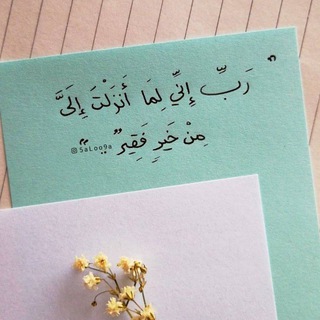 رَبِّ إِنِّي لِمَا أَنزَلْتَ إِلَيَّ
مِنْ خَيْرٍ فَقِيرٌ
5aLoo9a